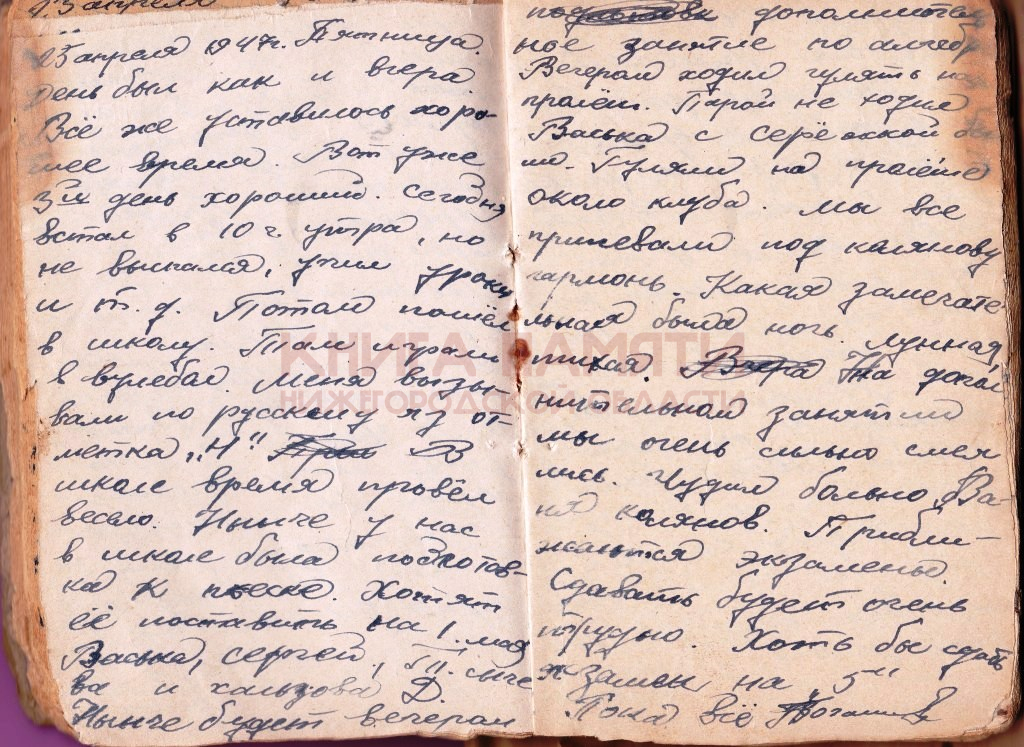 25 апреля 1947г. Пятница.
День был как и вчера.
Всё же уставилось хоро-
шее время. Вот уже
3ий день хороший. Сегодня
встал в 10 ч. утра, но
не выспался, учил уроки
и т.д. Потом пошёл
в школу. Там играли
в вулебал. Меня вызы-
вали по русскому яз от-
метка „Н" В
школе время провёл
весело. Нынче у нас
в школе была подготов-
ка к пьеске. Хотят
её поставить на 1. мая
Васька, Сергей,
ва и хальзова Д.
Нынче будет вечером
дополнитель
ное занятие по алгебр
Вечером ходил гулять на
пролёт. Парой не ходил
Васька с серёжкой
Гуляли на пролёте
около клуба. Мы все
припевали под калянову
гармонь. Какая замечате
льная была ночь. Лунная,
тихая. На допол
нительном занятии
мы очень сильно смея
лись. Чудил больно Ва-
ня калянов. Прибли-
жаются экзамены.
Сдавать будет очень
трудно. Хоть бы сдать
экзамен на 5"
Пока всё
КНИГА ПАМЯТИ
НИЖЕГОРОДСКОЙ ОБЛАСТИ